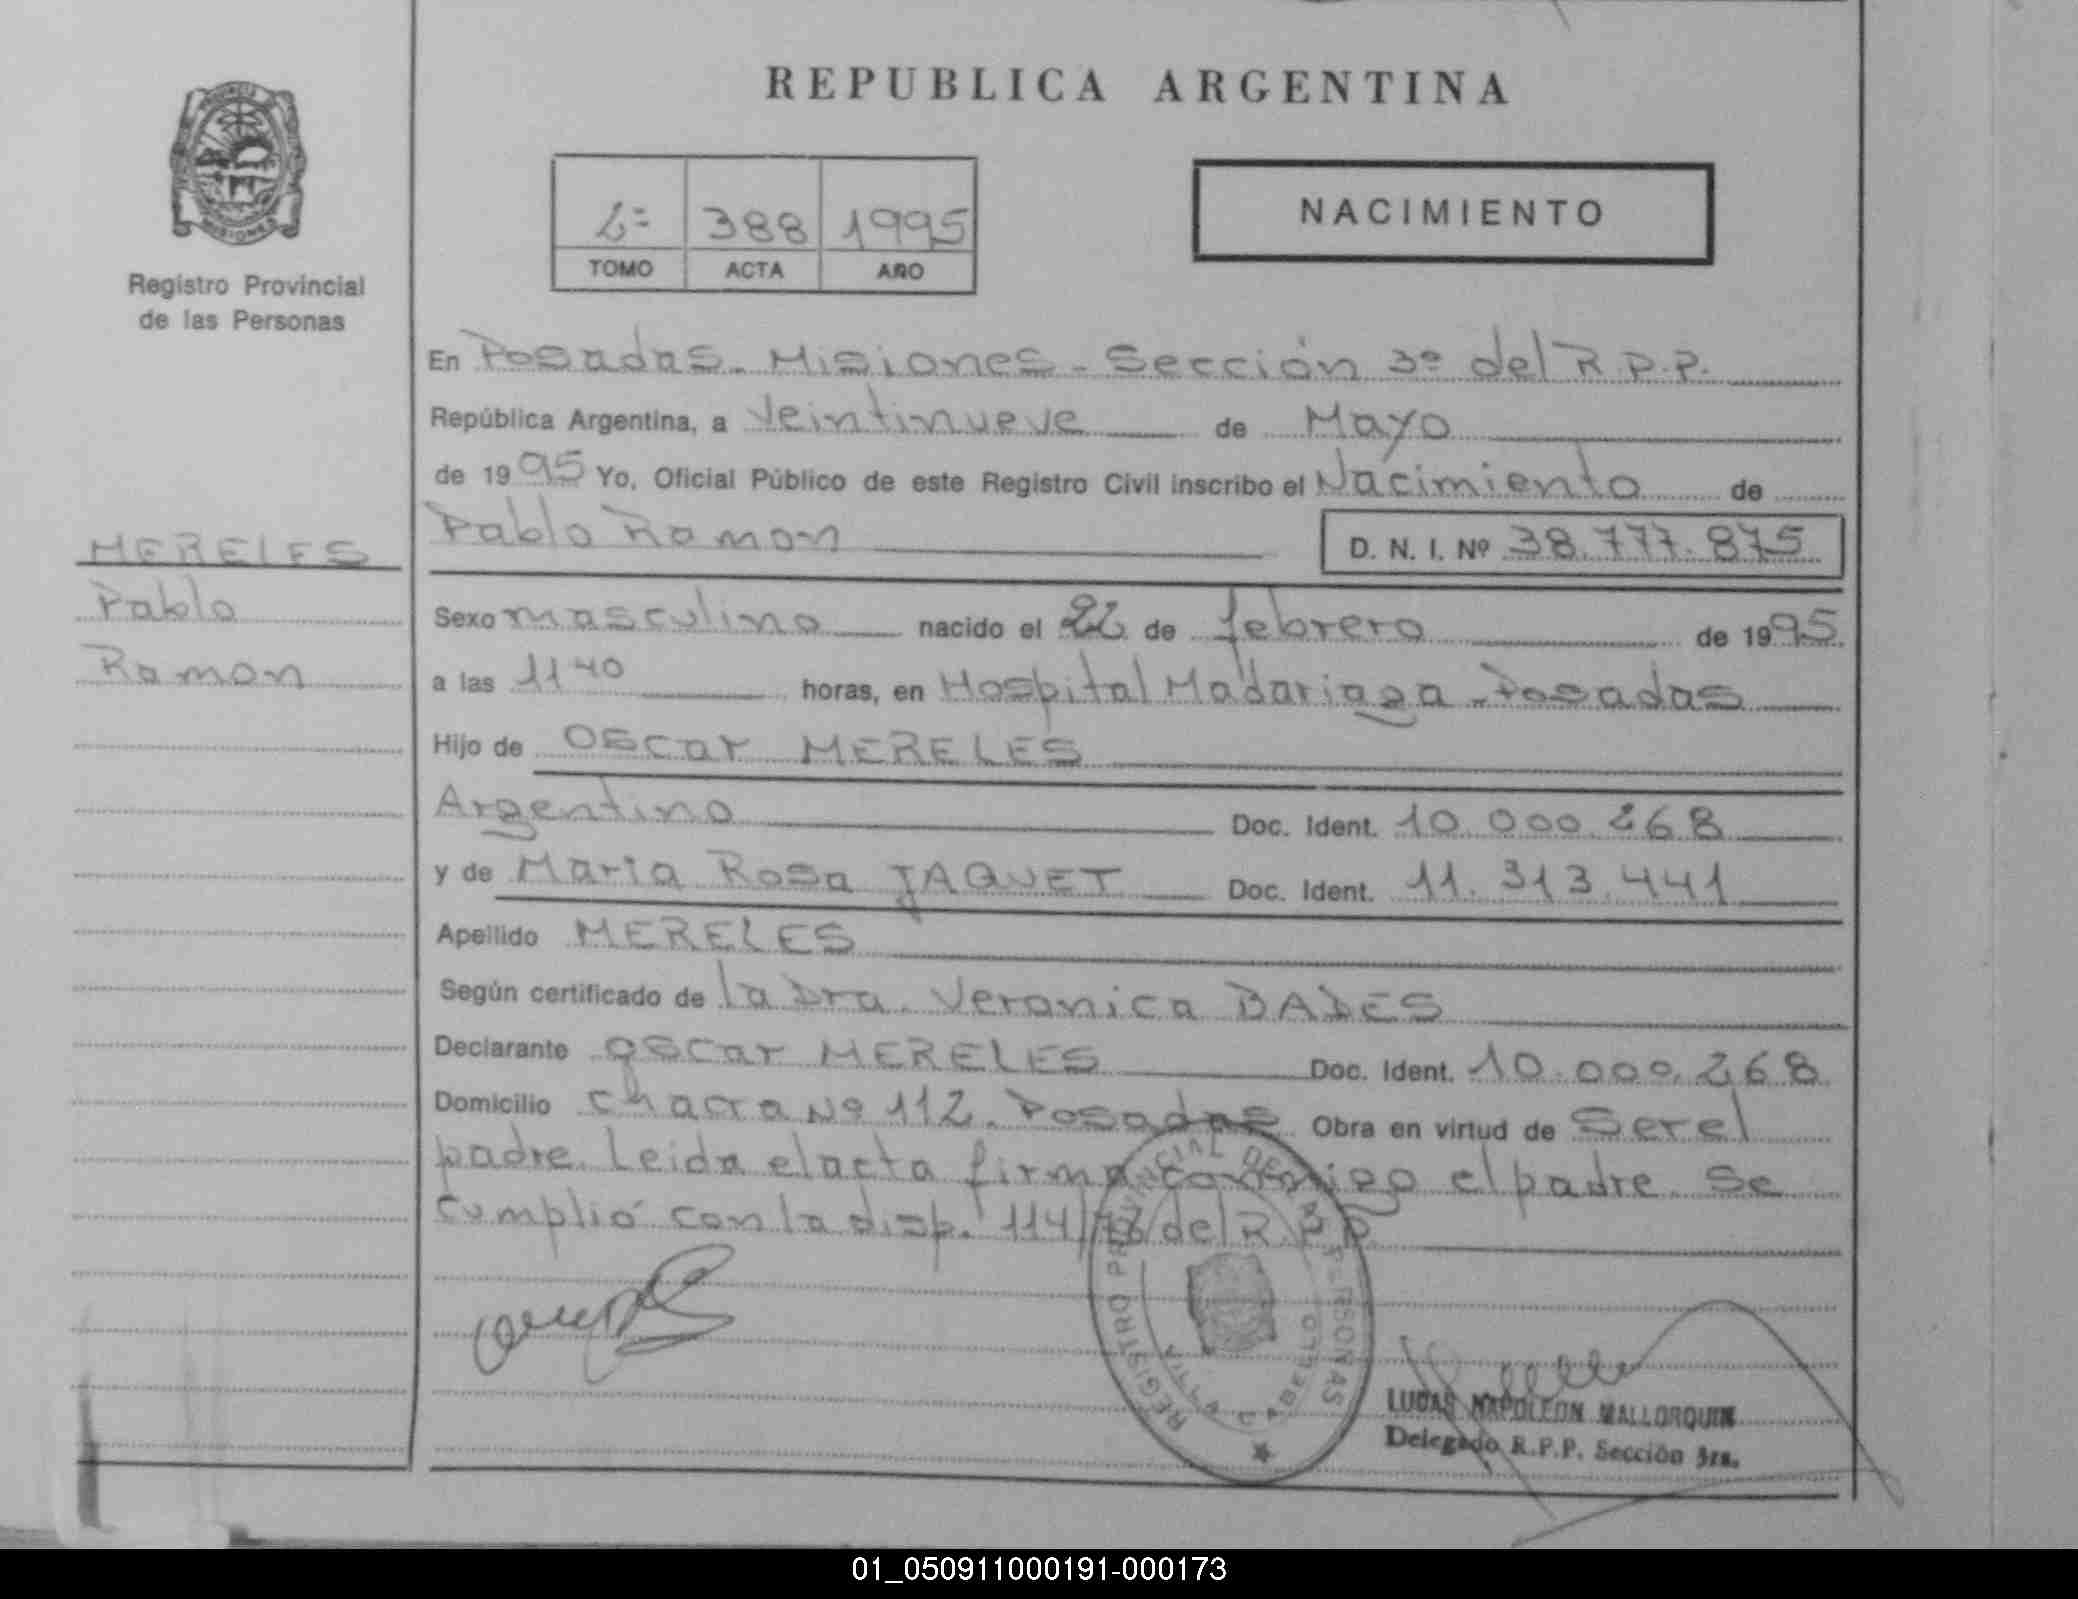 REPUBLICA ARGENTINA
PROVINCIA DE
MISIONES
Registro Provincial
de las Personas
388 1995
TOMO ACTA AÑO
NACIMIENTO
En Posadas. Misiones - Sección 3º del R.P.P.
República Argentina, a Veintinueve de Mayo
de 1995 Yo, Oficial Público de este Registro Civil inscribo el Nacimiento de
Pablo Ramon D. N. I. Nº 38.777.875
MERELES
Pablo
Ramon
Sexo masculino nacido el 22 de febrero de 1995
a las 11 40 horas, en Hospital Madariaga - Posadas
Hijo de Oscar MERELES
Argentino Doc. Ident. 10.000.268
y de Maria Rosa JAQUET Doc. Ident. 11.313.441
Apellido MERELES
Según certificado de la Dra. Veronica
Declarante Oscar MERELES Doc. Ident. 10.000.268
Domicilio chacra Nº 112. Posadas Obra en virtud de Ser el
padre. Leida el acta firma conmigo el padre. Se
cumplió con la disp. 114/78 del R.P.P.
REGISTRO PROVINCIAL DE LAS PERSONAS
LUCAS NAPOLEON MALLORQUIN
Delegado R.P.P. Sección 3ra.
01_050911000191-000173